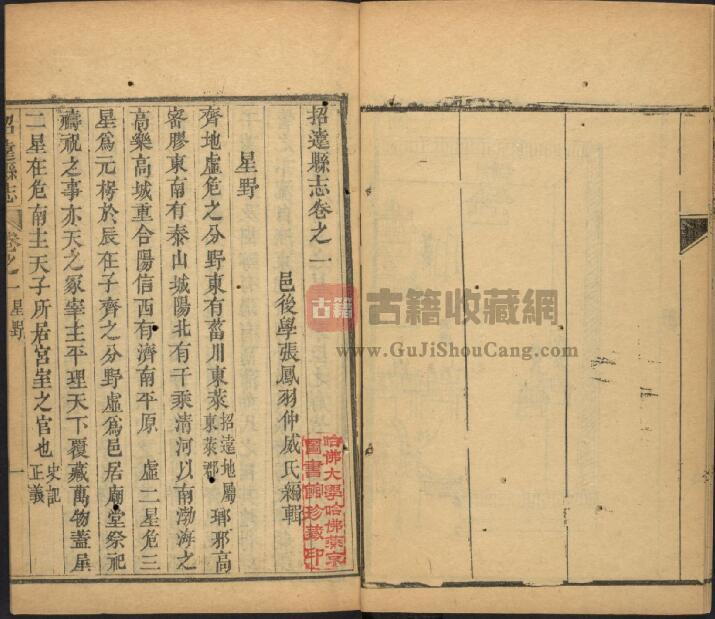 招遠縣志卷之一
邑後學張鳳羽仲威氏編輯
星野
齊地虛危之分野東有菑川東萊招遠地屬東萊郡瑯邪高
密膠東南有泰山城陽北有千乘清河以南渤海之
高樂高城重合陽信西有濟南平原 虛二星危三
星爲元枵於辰在子齊之分野虛爲邑居廟堂祭祀
禱祝之事亦天之冢宰主平理天下覆藏萬物蓋屋
二星在危南主天子所居宮室之官也史記正義
招遠縣志 卷之一 星野 一
哈佛大學哈佛燕京
圖書館珍藏印
古籍 古籍收藏網
www.GuJiShouCang.com